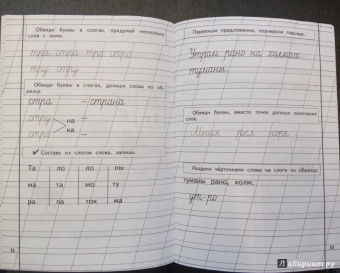 Обведи буквы в слогах, придумай несколько
слов с ними.
тра стра тра стра
тру стру
Обведи буквы в слогах, допиши слова по об-
разцу.
стра – страна
стру –
на
ка
стро –
✓ Составь из слогов слова, запиши.
Та ло ло ны
ма та мо ту
ра па ток ма
12
Перепиши предложение, подчеркни гласные.
Утром рано на холмах
туманы.
Обведи буквы, вместо точек допиши окончания
слов.
Раздели чёрточками слова на слоги по образцу.
туманы рано, холм.
ут-ро
13
Лабиринт.ру